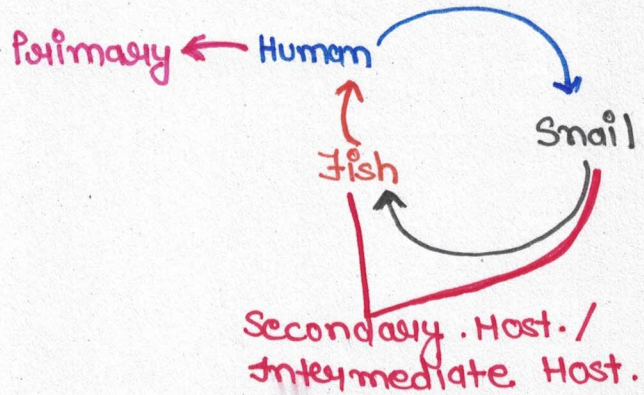 Primary
Human
Snail
Fish
Secondary . Host . /
Intermediate Host .